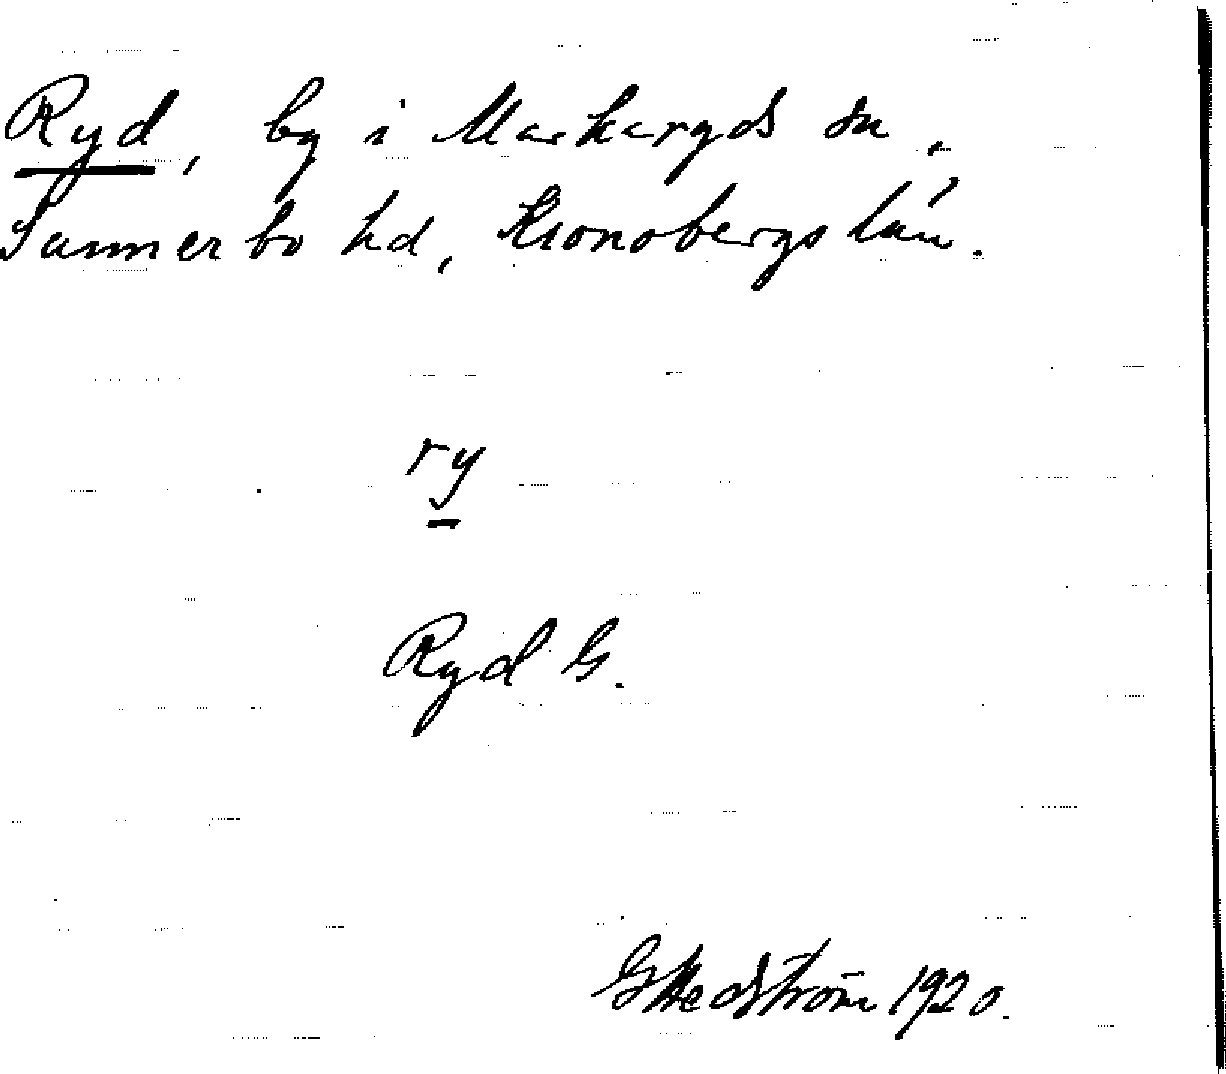 Ryd, by i Markaryds sn,
Sunnerbo hd, Kronobergs län.
ry
Ryd G.
GHedström 1920.